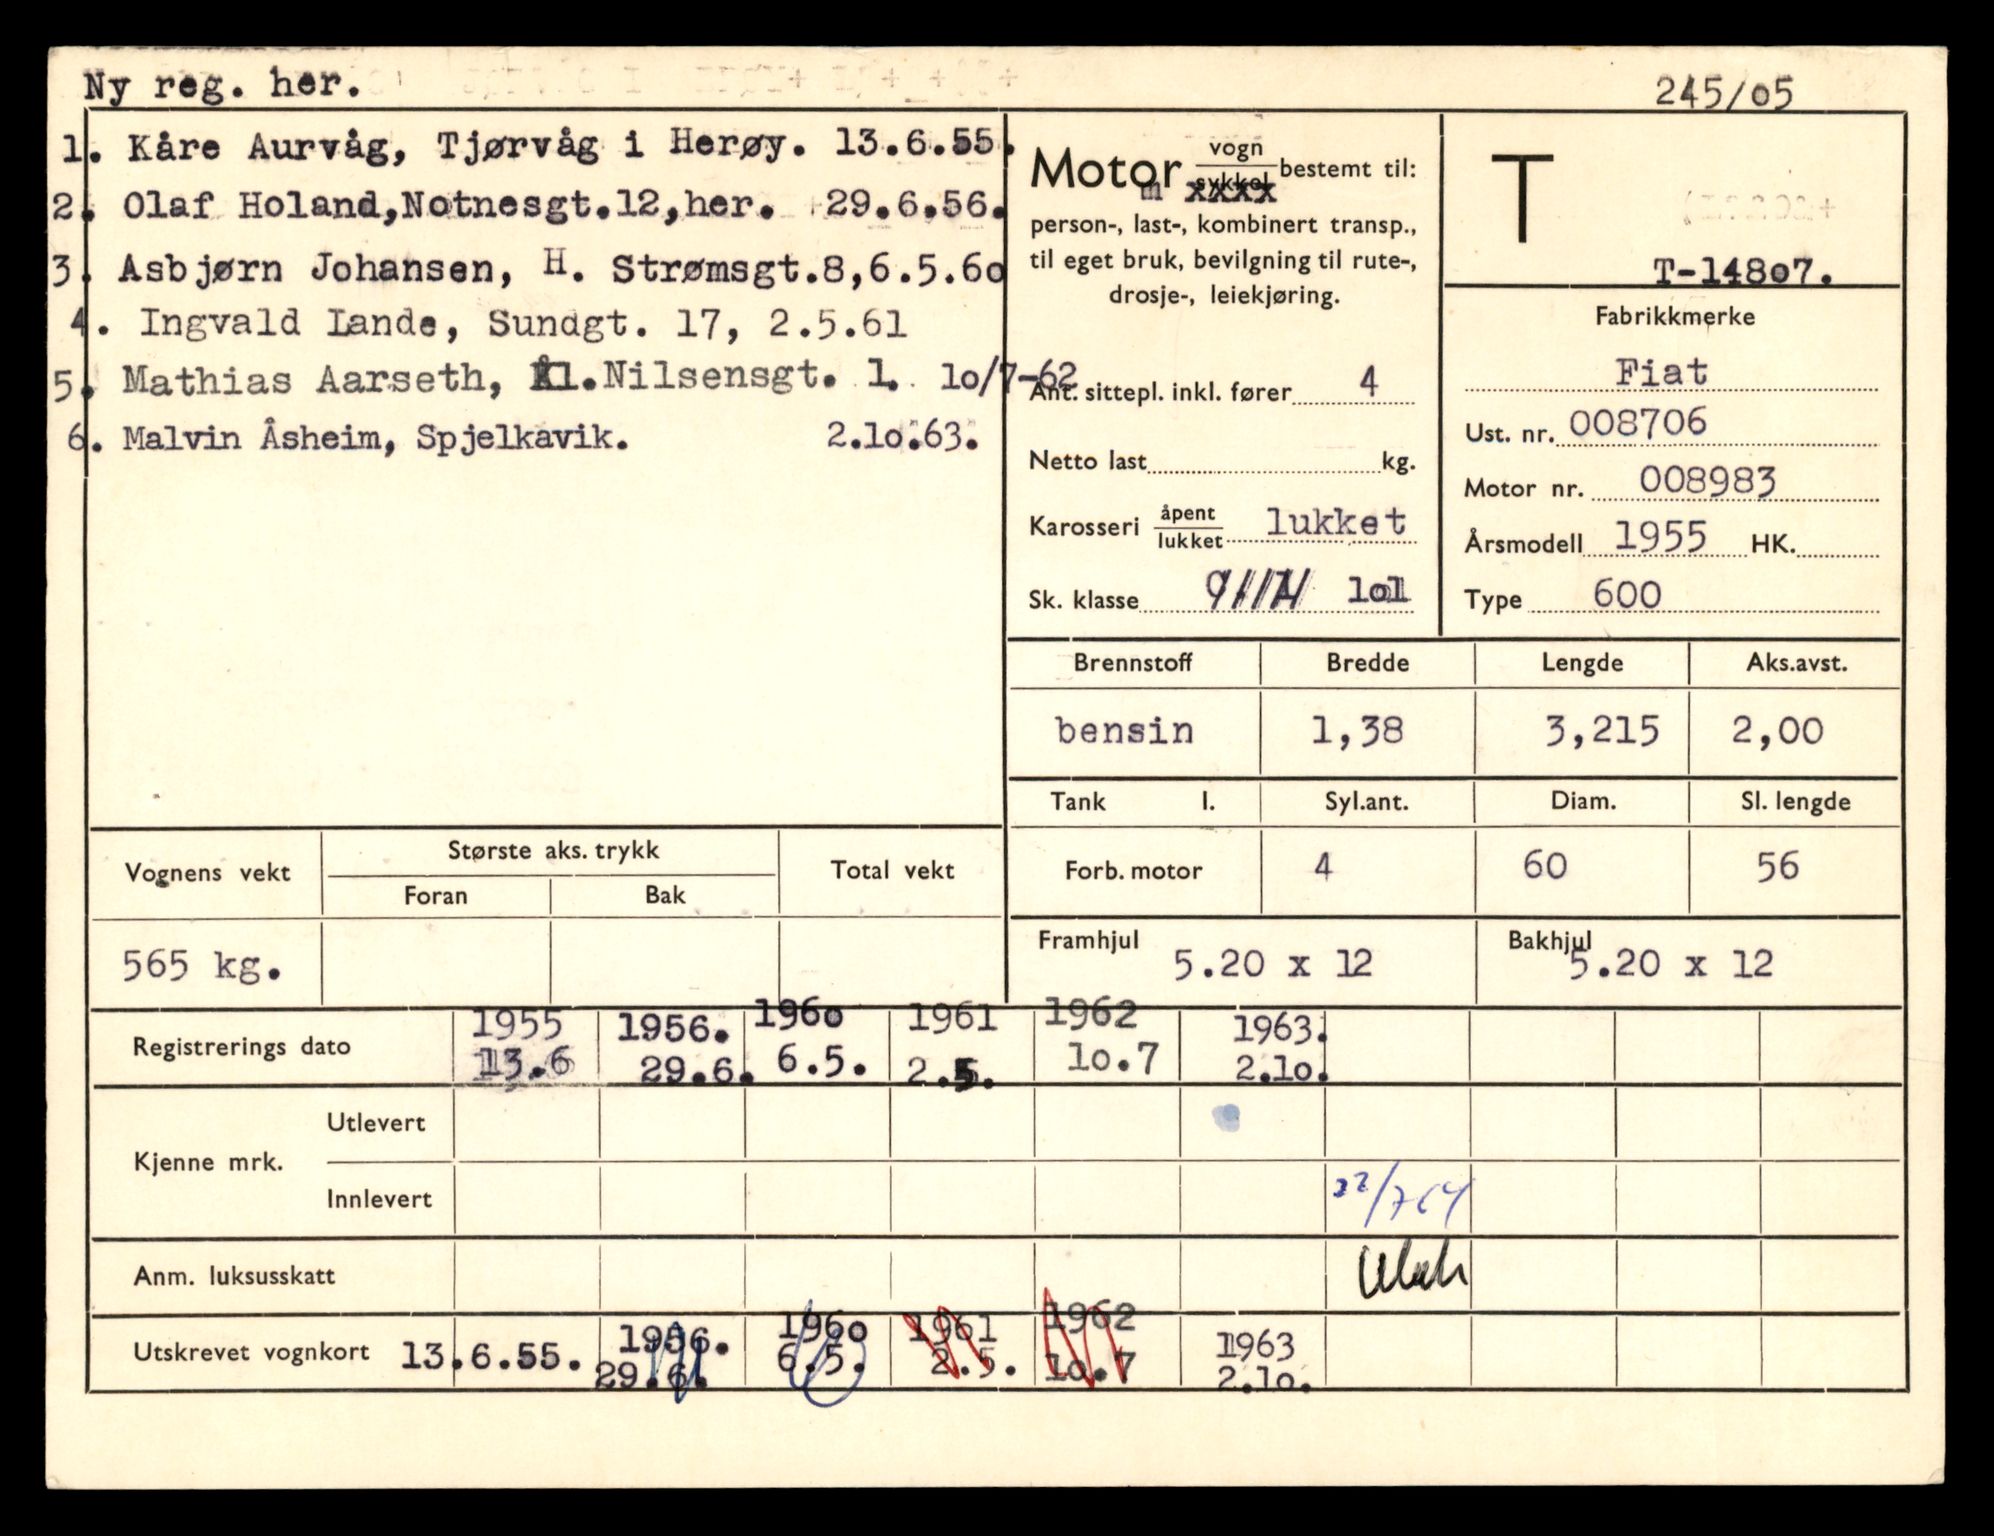 Ny reg. her.
245/o5
1. Kåre Aurvåg, Tjørvåg i Herøy. 13.6.55.
2. Olaf Holand,Notnesgt.12,her. 29.6.56.
3. Asbjørn Johansen, H. Strømsgt.8,6.5.6o
4. Ingvald Lande, Sundgt. 17, 2.5.61
5. Mathias Aarseth, Kl.Nilsensgt. 1. 1o/7-62
6. Malvin Åsheim, Spjelkavik. 2.1o.63.
Motor vogn sykkel bestemt til:
m xxxx
person-, last-, kombinert transp.,
til eget bruk, bevilgning til rute-,
drosje-, leiekjøring.
Ant. sittepl. inkl. fører 4
Netto last kg.
Karosseri åpent lukket lukket
Sk. klasse 1o1
T
T-148o7.
Fabrikkmerke
Fiat
Ust. nr. 008706
Motor nr. 008983
Årsmodell 1955 HK.
Type 600
Brennstoff Bredde Lengde Aks.avst.
bensin 1,38 3,215 2,00
Tank l. Syl.ant. Diam. Sl. lengde
Forb. motor 4 60 56
Framhjul 5.20 x 12 Bakhjul 5.20 x 12
Vognens vekt Største aks. trykk Total vekt
Foran Bak
565 kg.
Registrerings dato 1955 1956. 196o 1961 1962 1963.
13.6 29.6. 6.5. 2.5. 1o.7 2.1o.
Kjenne mrk. Utlevert
Innlevert 22/7 64
Anm. luksusskatt
Utskrevet vognkort 13.6.55. 1956. 196o 1961 1962 1963
29.6. 6.5. 2.5. 1o.7 2.1o.